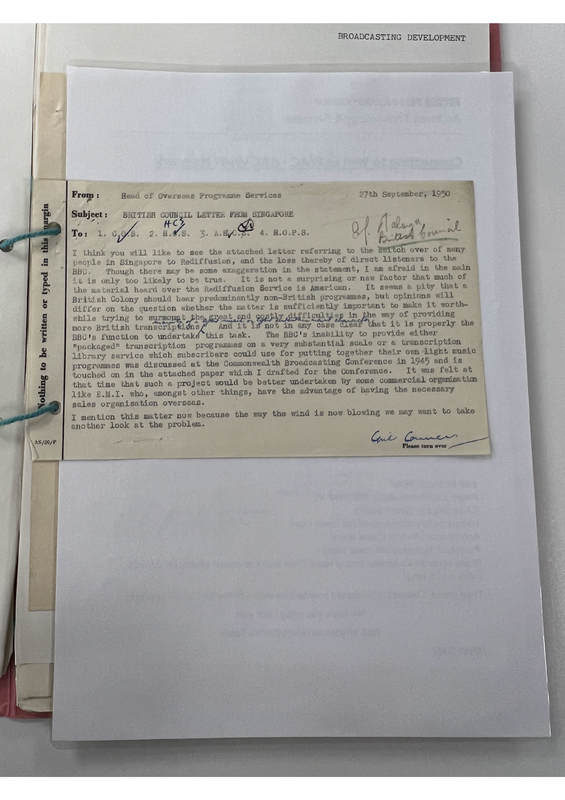 BROADCASTING DEVELOPMENT
From: Head of Overseas Programme Services 27th September, 1950
Subject: BRITISH COUNCIL LETTER FROM SINGAPORE
To: 1. C.O.S. 2. H.E.S. 3. 4. H.O.P.S.
Malaya
British Council
I think you will like to see the attached letter referring to the switch over of many
people in Singapore to Rediffusion, and the loss thereby of direct listeners to the
BBC. Though there may be some exaggeration in the statement, I am afraid in the main
it is only too likely to be true. It is not a surprising or new factor that much of
the material heard over the Rediffusion Service is American. It seems a pity that a
British Colony should hear predominantly non-British programmes, but opinions will
differ on the question whether the matter is sufficiently important to make it worth-
while trying to surmount the great and costly difficulties in the way of providing
more British transcriptions, and it is not in any case clear that it is properly the
BBC's function to undertake this task. The BBC's inability to provide either
"packaged" transcription programmes on a very substantial scale or a transcription
library service which subscribers could use for putting together their own light music
programmes was discussed at the Commonwealth Broadcasting Conference in 1945 and is
touched on in the attached paper which I drafted for the Conference. It was felt at
that time that such a project would be better undertaken by some commercial organisation
like E.M.I. who, amongst other things, have the advantage of having the necessary
sales organisation overseas.
I mention this matter now because the way the wind is now blowing we may want to take
another look at the problem.
Please turn over
Nothing to be written or typed in this margin